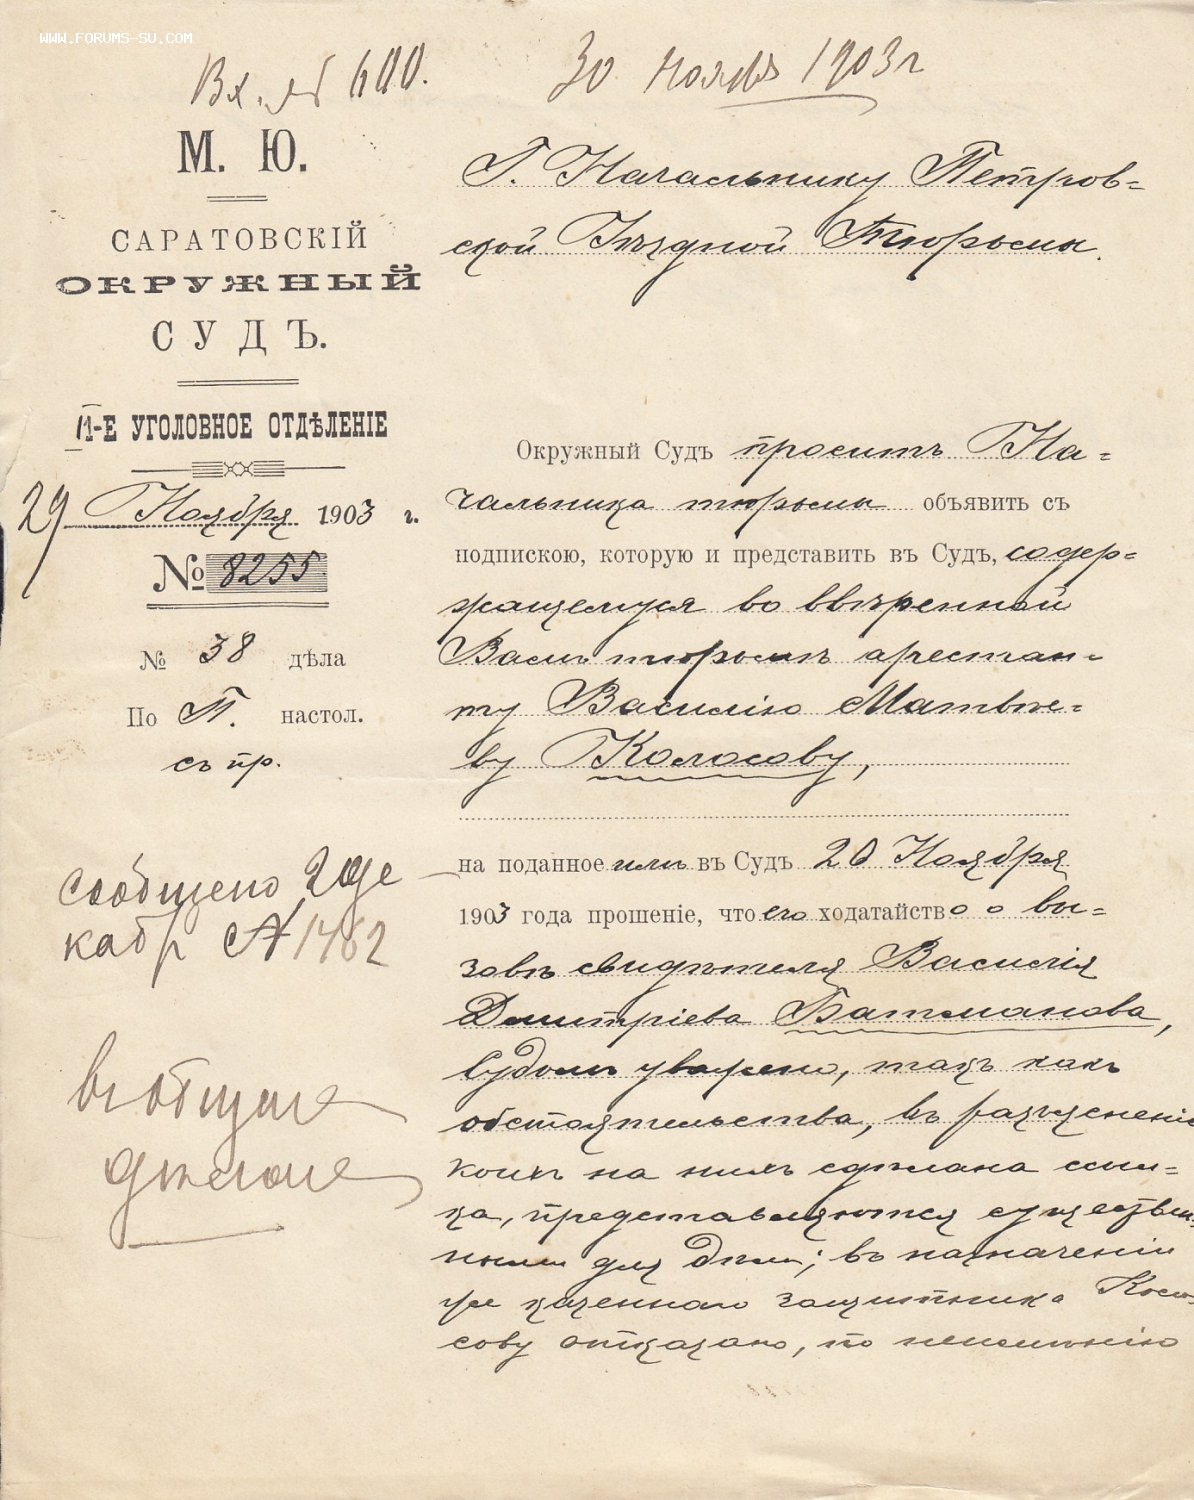 WWW.FORUMS-SU.COM
Вх. № 600.
30 Ноябр 1903 г
М. Ю.
САРАТОВСКІЙ
ОКРУЖНЫЙ
СУДЪ.
II-Е УГОЛОВНОЕ ОТДѢЛЕНІЕ
29 Ноября 1903 г.
№ 8255
№ 38 дѣла
По П. настол.
съ пр.
сообщено 2 де
кабр № 1482
въ общее
дѣло
Г. Начальнику Петров-
ской Уѣздной Тюрьмы.
Окружный Судъ проситъ На-
чальника тюрьмы объявить съ
подпискою, которую и представить въ Судъ, содер-
жащемуся во ввѣренной
Вамъ тюрьмѣ арестан-
ту Василію Матвѣе-
ву Колосову,
на поданное имъ въ Судъ 20 Ноября
1903 года прошеніе, что его ходатайство о вы-
зовѣ свидѣтеля Василія
Дмитріева Батманова,
Судомъ уважено, такъ какъ
обстоятельства, въ разъясненіе
коихъ на нихъ сдѣлана ссыл-
ка, представляются существен-
ными для дѣла; въ назначеніи
же казеннаго защитника Коло-
сову отказано, по неимѣнію